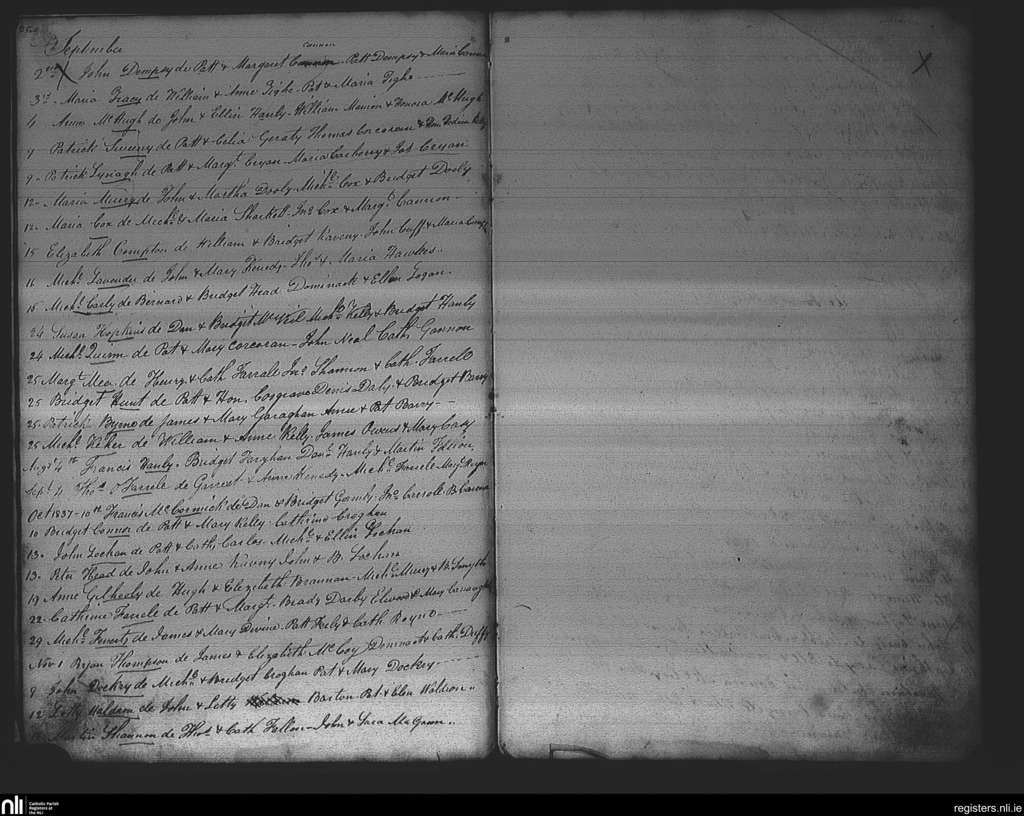 September
cannon
2nd X John Dempsy de Patt & Margaret Patt Dempsy & Maria
3d. Maria Tracy de William & Anne Tighe. Pat & Maria Tighe
4 Anne McHugh de John & Ellen Hanly. William Manion & Honora McHugh
7 Patrick Sweeny de Patt & Celia Geraty Thomas Corcoran &
9. Patrick Lynagh de Patt & Margt. Cryan. Maria & Pat Cryan
12. Maria de John & Martha Dooly Michl. Cox & Bridget Dooly
12. Maria Cox de Michl. & Maria Shackell. Jno Cox & Margt. Cannon
15 Elizabeth Compton de William & Bridget Kaveny. John Cuff & Maria Cuff
16 Michl. Lavender de John & Mary Kenedy. Thos & Maria Hawkes.
16 Michl. Carly de Bernard & Bridget Head Dominack & Ellen Logan.
24 Susan Hopkins de Dan & Bridget McNeil Michl. Kelly & Bridget Hanly
24 Michl. Quinn de Pat & Mary Corcoran - John Neal Cath. Gannon
25 Margt. Mea de Henry & Cath Farrale Jno. Shannon & Cath. Farrell
25 Bridget Hunt de Patt & Hon. Cosgrave Denis Daly & Bridget
25. Patrick Byrne de James & Mary Garaghan Anne & Pat Barry
25 Michl. de William & Anne Kelly. James Owens & Mary Casy
Augst 4th Francis Hanly. Bridget Farghan Danl. Hanly & Martin
Sept. 4 Thos. O Farrele de Garrett & Anne Kenedy. Michl. Farrele Margt.
Oct 1837 - 10th Francis McCormick de Dan & Bridget Gormly. Jno. Carrole B.
10 Bridget Connor de Patt & Mary Kelly. Cathrine Croghan
13. John Lochan de Patt & Cath. Carlos. Michl. & Ellen Lochan
13. Peter Head de John & Anne Kaveny John & B. Lochan
19 Anne Gilheely de Hugh & Elezebeth Brannan. Michl. & B. Smyth
22. Cathrine Farrele de Patt & Margt. Brady Darby & Mary
29 Michl. de James & Mary Devine. Patt & Cath Rayno
Nov 1 Bryan Thompson de James & Elizabeth McCoy & Cath. Duffy
8 John Dockry de Michl. & Bridget Croghan Pat & Mary Dockry
12 Letty Waldron de John & Letty Barton Pat & Elen Waldron
Shannon de Thos. & Cath Fallon - John & Sara McGann.
X
nli
Catholic Parish
Registers at
the NLI
registers.nli.ie